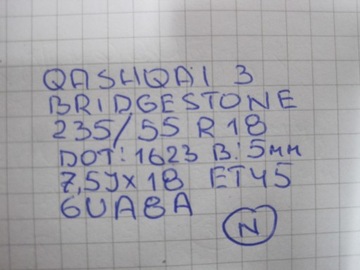 QASHQAI 3
BRIDGESTONE
235/55 R 18
DOT: 1623 B: 5мм
7,5Jx18 ET45
6UA8A
N